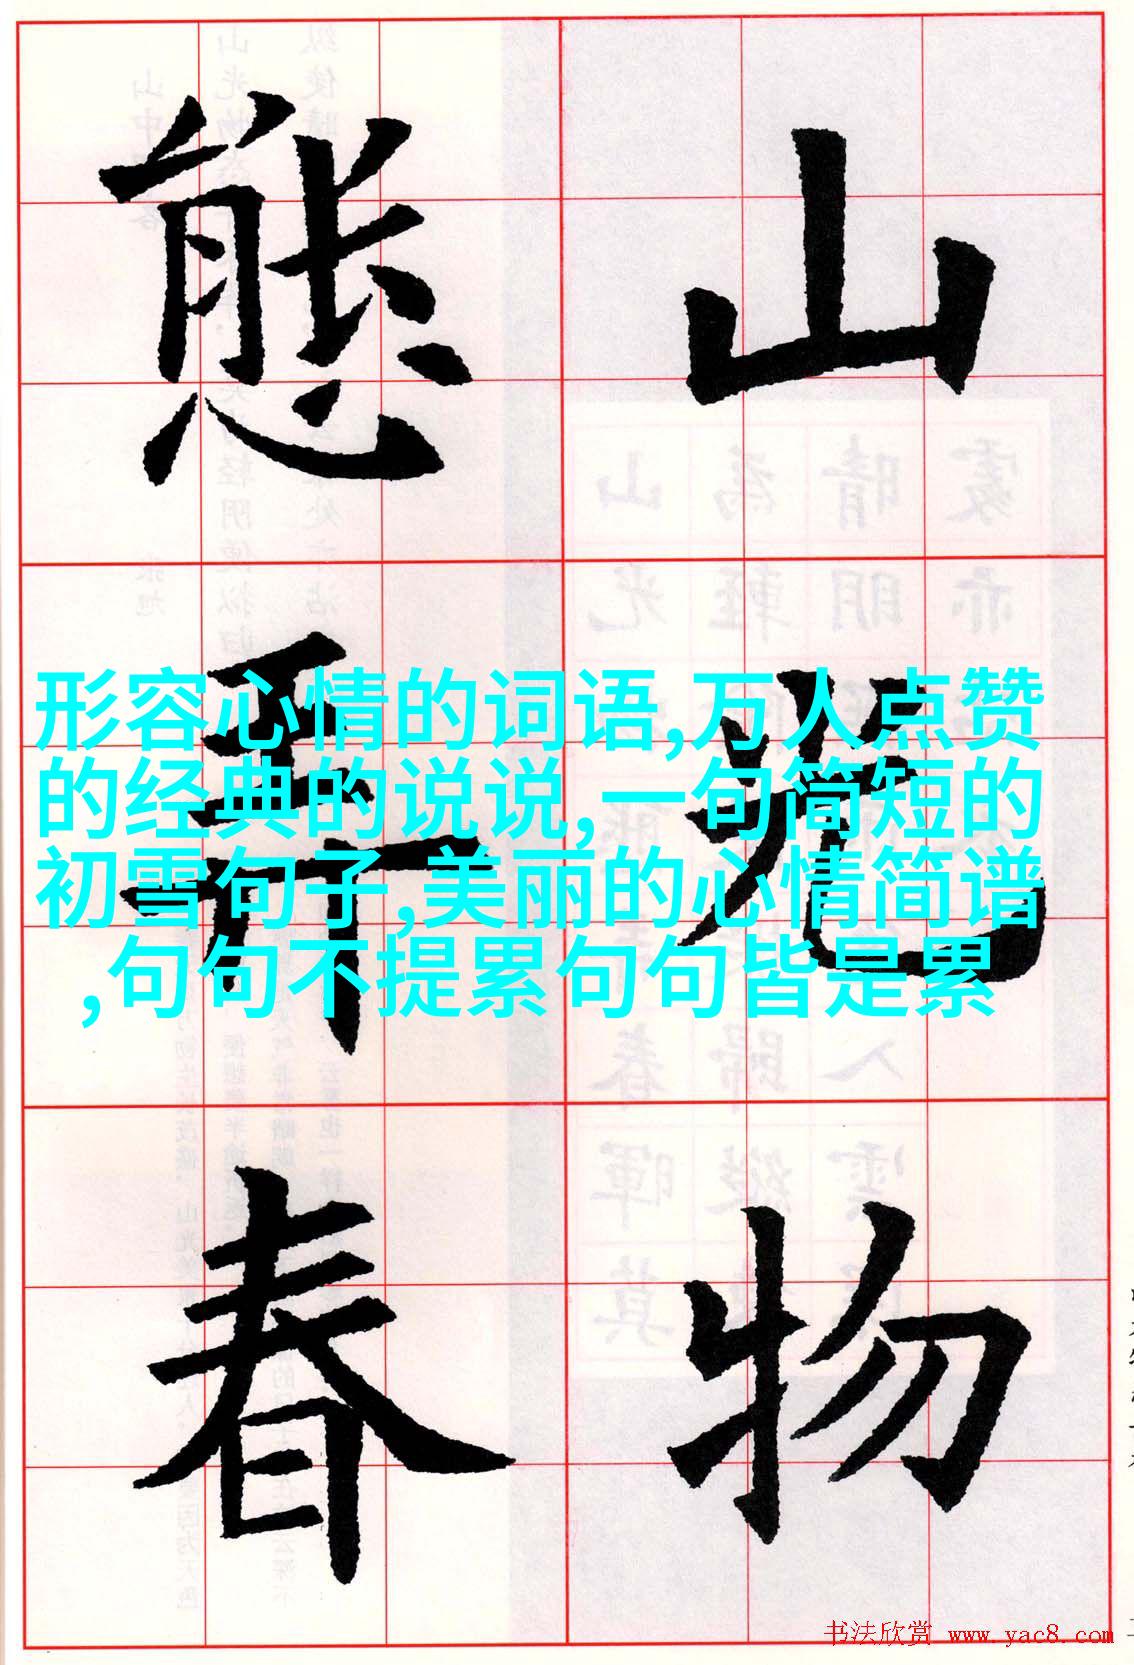 山光物
態弄春
形容心情的词语,万人点赞
的经典的说说,一句简短的
初雪句子,美丽的心情简谱
,句句不提累句句皆是累
书法欣赏 www.yac8.com